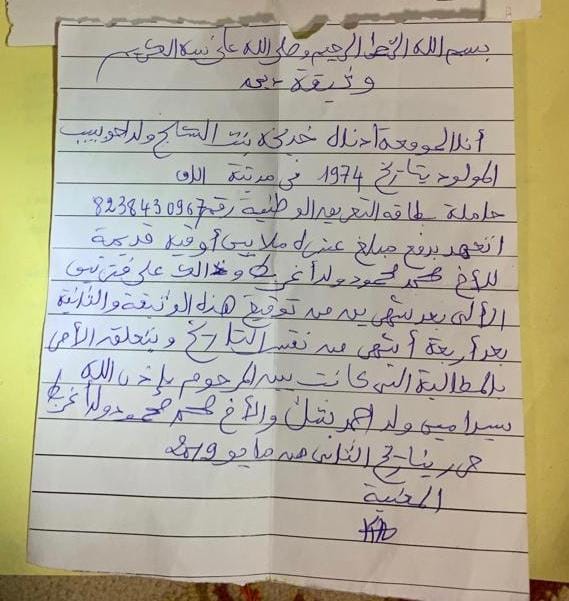 بسم الله الرحمن الرحيم وصلى الله على نبيه الكريم
وثيقة تعهد
أنا الموقعة أدناه خديجة بنت الشايخ ولد احبيب
المولود بتاريخ 1974 في مدينة
حاملة بطاقة التعريف الوطنية رقم 8238430967
اتعهد بدفع مبلغ عشرة ملايين أوقية قديمة
للأخ محمد محمود ولد أغربط وذالك على فترتين
الألى بعد شهرين من توقيع هذه الوثيقة والثانية
بعد أربعة أشهر من نفس التاريخ ويتعلق الأمر
بالمطالبة التي كانت بين المرحوم بإذن الله
سيد امين ولد احمد والأخ محمد محمود ولد أغربط
حرر بتاريخ الثاني من مايو 2019
المعنية